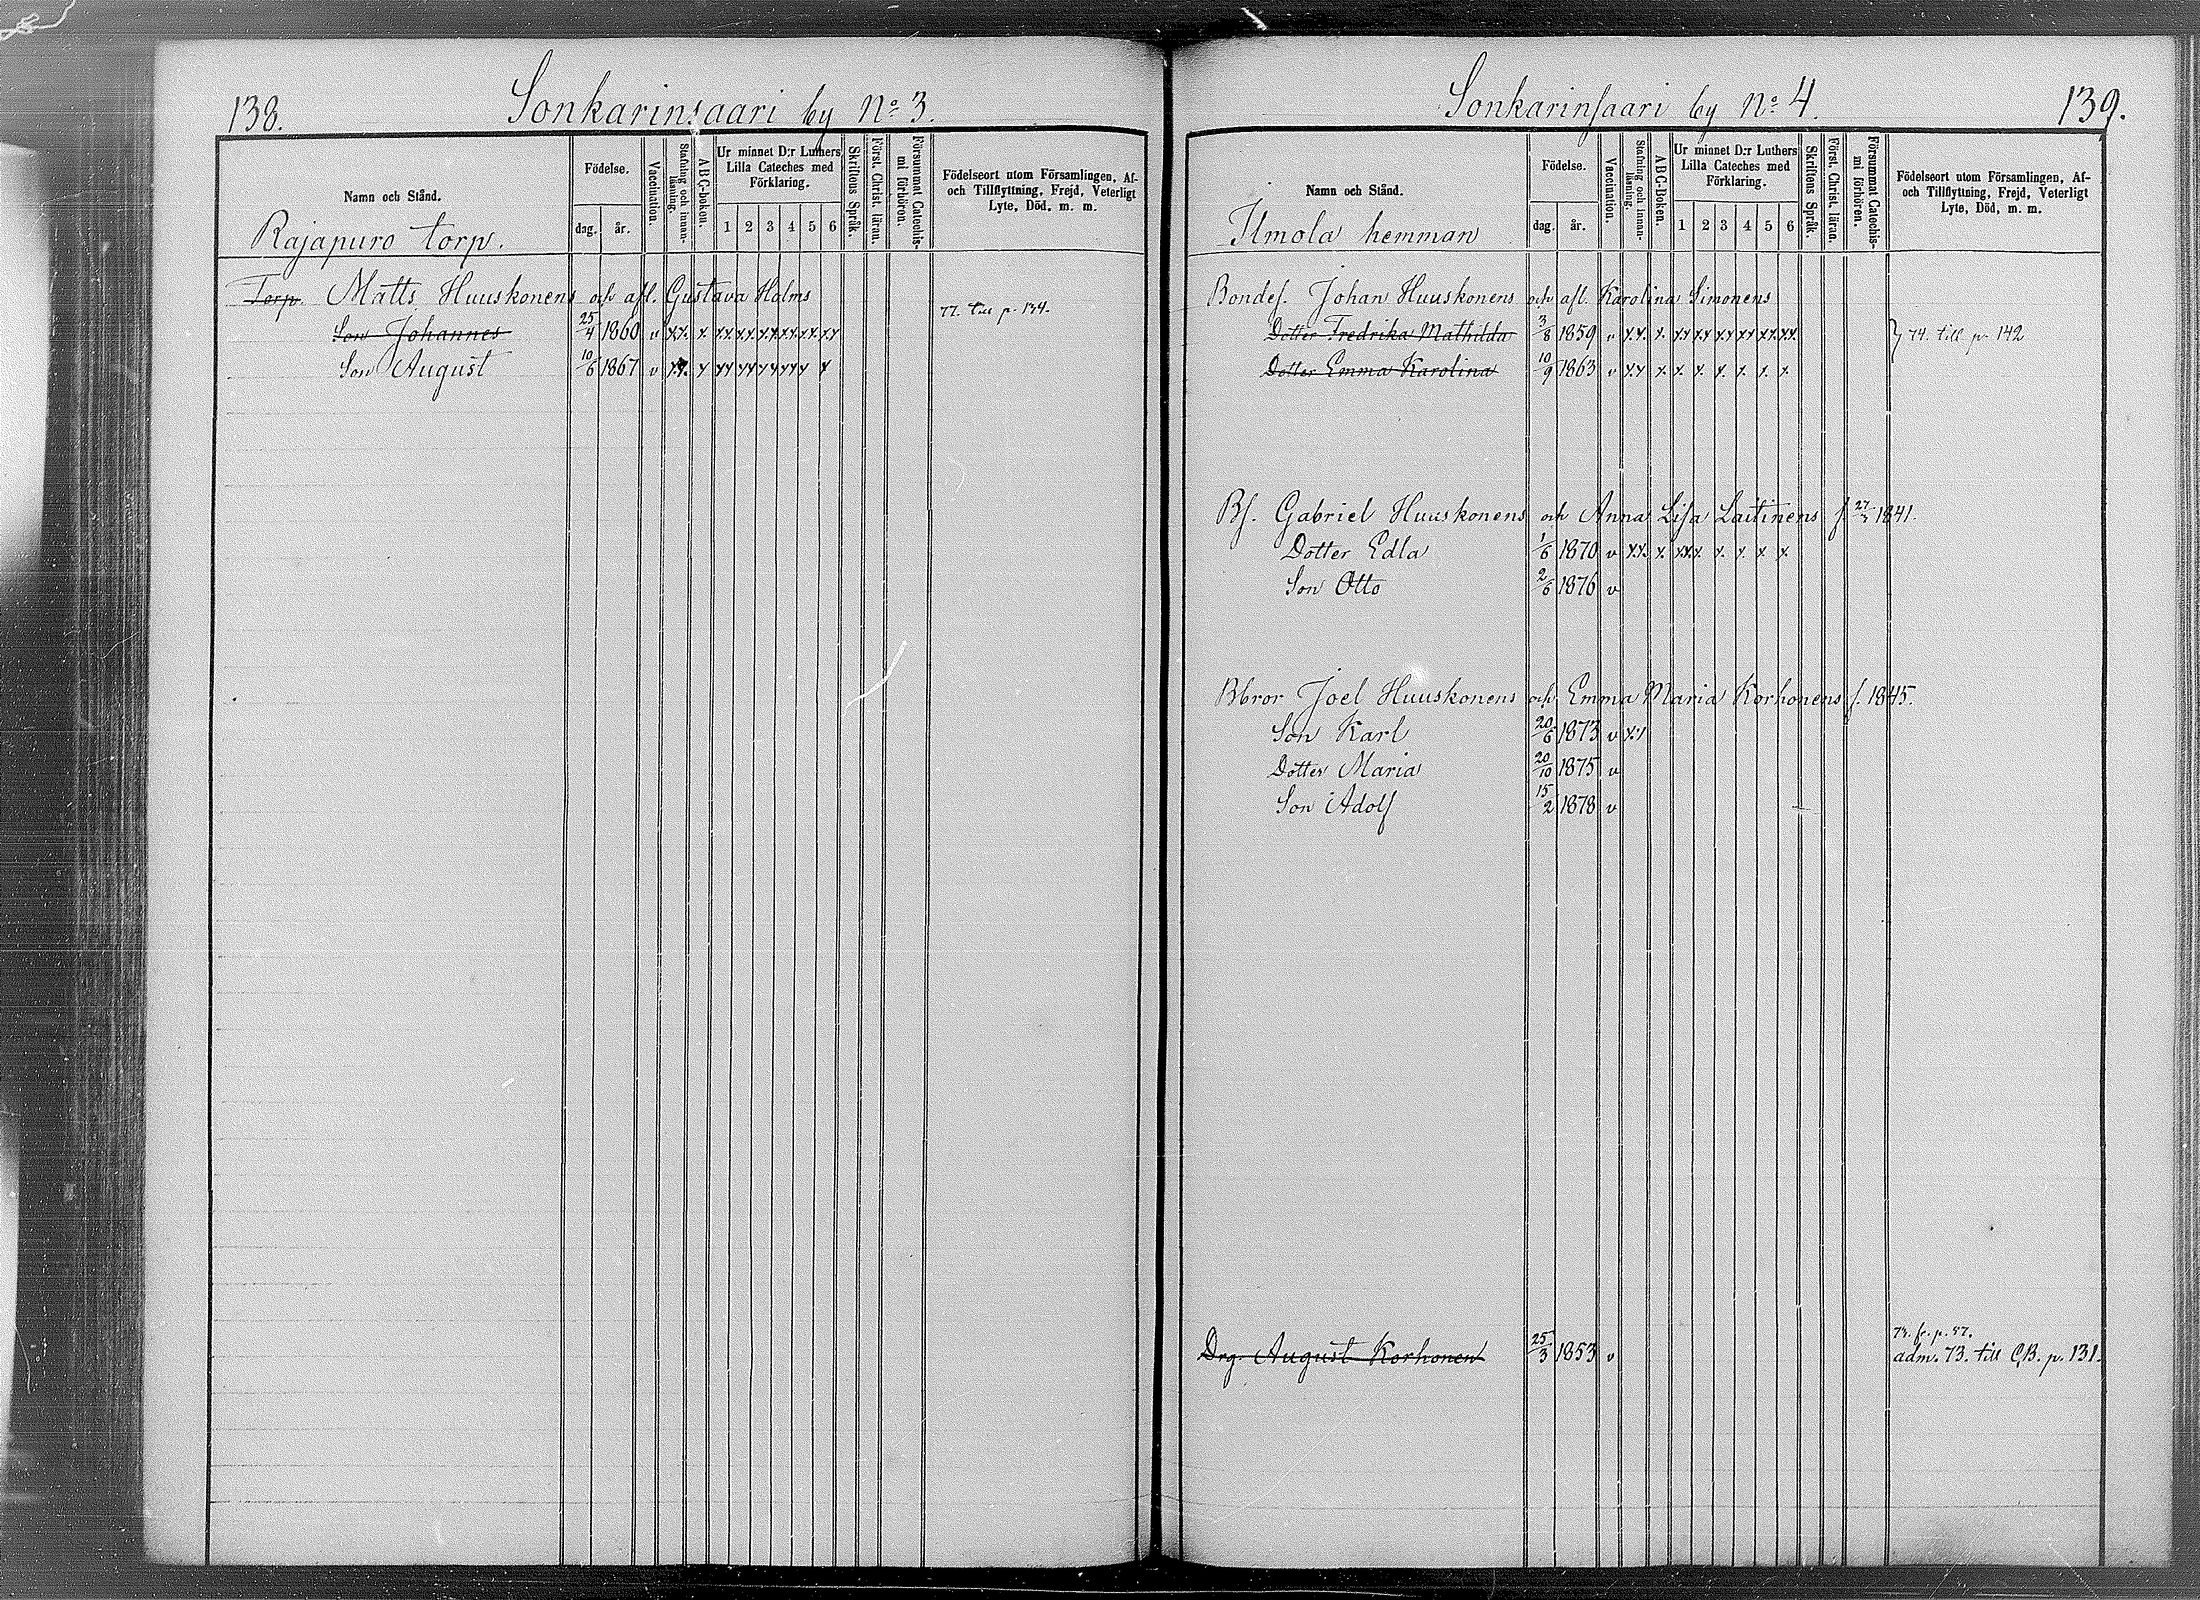 138.
Sonkarinsaari by No 3.
Namn och Stånd.
Födelse.
dag. år.
Vaccination.
Stafning och innanläsning.
ABC-boken.
Ur minnet D:r Luthers Lilla Cateches med Förklaring.
1 2 3 4 5 6
Skriftens Språk.
Först. Christ. läran.
Försummat Catechismi förhören.
Födelseort utom Församlingen, Af- och Tillflyttning, Frejd, Veterligt Lyte, Död, m. m.
Rajapuro torp.
Torp. Matts Huuskonens och afl. Gustava Holms
Son Johannes 25/4 1860 v 77. till p. 134.
Son August 10/6 1867 v
139.
Sonkarinsaari by No 4.
Namn och Stånd.
Födelse.
dag. år.
Vaccination.
Stafning och innanläsning.
ABC-boken.
Ur minnet D:r Luthers Lilla Cateches med Förklaring.
1 2 3 4 5 6
Skriftens Språk.
Först. Christ. läran.
Försummat Catechismi förhören.
Födelseort utom Församlingen, Af- och Tillflyttning, Frejd, Veterligt Lyte, Död, m. m.
Ilmola hemman
Bondes. Johan Huuskonens och afl. Karolina Simonens
Dotter Fredrika Mathilda 3/8 1859 v 74. till p. 142
Dotter Emma Karolina 10/9 1863 v
Bs. Gabriel Huuskonens och Anna Lisa Laitinens f. 1841.
Dotter Edla 1/6 1870 v
Son Otto 2/6 1876 v
Bbror Joel Huuskonens och Emma Maria Korhonens f. 1845.
Son Karl 20/6 1873 v
Dotter Maria 20/10 1875 v
Son Adolf 15/2 1878 v
Drg. August Korhonen 25/3 1853 v
fr. p. 57.
adm. 73. till C.B. p. 131.